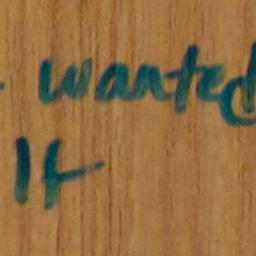 wanted
It